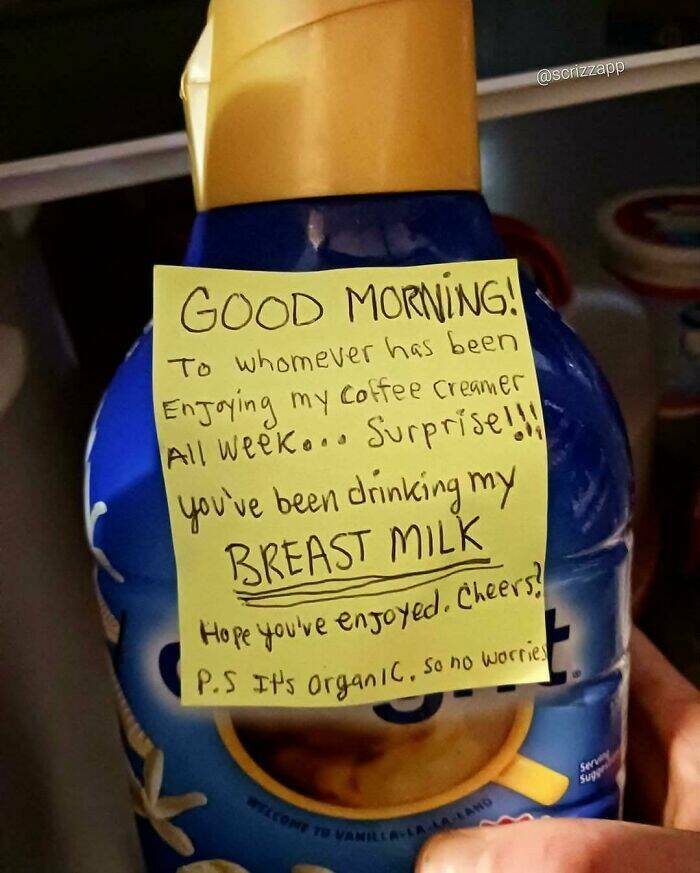 @scrizzapp
GOOD MORNING!
To whomever has been
Enjoying my Coffee Creamer
All week... Surprise!!!
you've been drinking my
BREAST MILK
Hope you've enjoyed. Cheers!
P.S It's organic. So no worries
t.
Serving
WELCOME TO VANILLA-LA-LA-LAND